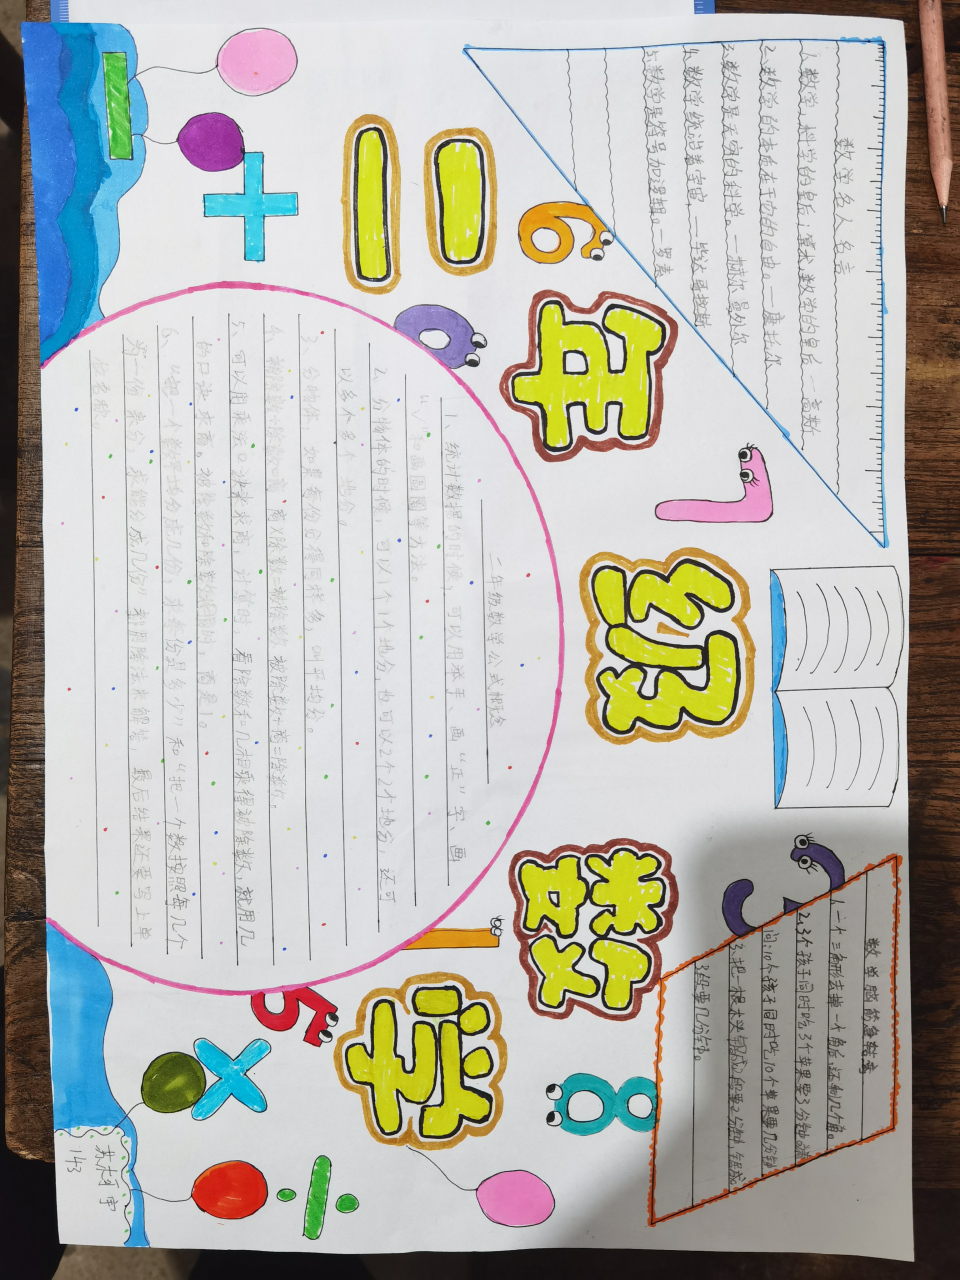 二年级数学
数学名人名言
1.数学，科学的皇后；算术，数学的皇后 — 高斯
2.数学的本质在于动的自由。— 康托尔
3.数学是无穷的科学。— 赫尔曼外尔
4.数学统治着宇宙 — 毕达哥拉斯
5.数学是符号加逻辑。— 罗素
二年级数学公式概念
1、统计数据的时候，可以用
画“正”字、画
“√”和画圈圈等方法。
2、分物体的时候，可以1个1个地分，也可以2个2个地分，还可
以多个多个地分。
3、
分物体，如果每份分得同样多，叫平均分。
4、被除数÷除数=商 商×除数=被除数 被除数÷商=除数。
5、可以用乘法口诀来求商，计算时，看除数和几相乘得被除数，就用几
的口诀求商。
6、“把一个数平均分成几份，求每份是多少”和“把一个数按照每几个
为一份来分，求能分成几份”都用除法来解答，最后结果还要写上单
位名称。
数学脑筋急转弯
1.一个三角形去掉一个角后，还剩几个角。
2.3个孩子同时吃3个苹果要3分钟，请
问：10个孩子同时吃10个苹果要几分钟
3.把一根木头锯成2段要2分钟，锯成
3段要几分钟。
143